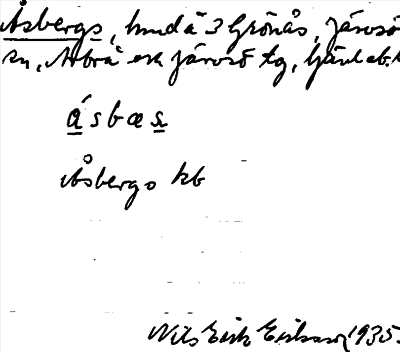 Åsbergs, hmd å 3 Grönås, Järvsö
sn, Arbrå och Järvsö tg, Gävleb.l
ásbæs
Åsbergs kb
Nils Erik Eriksson 1935.